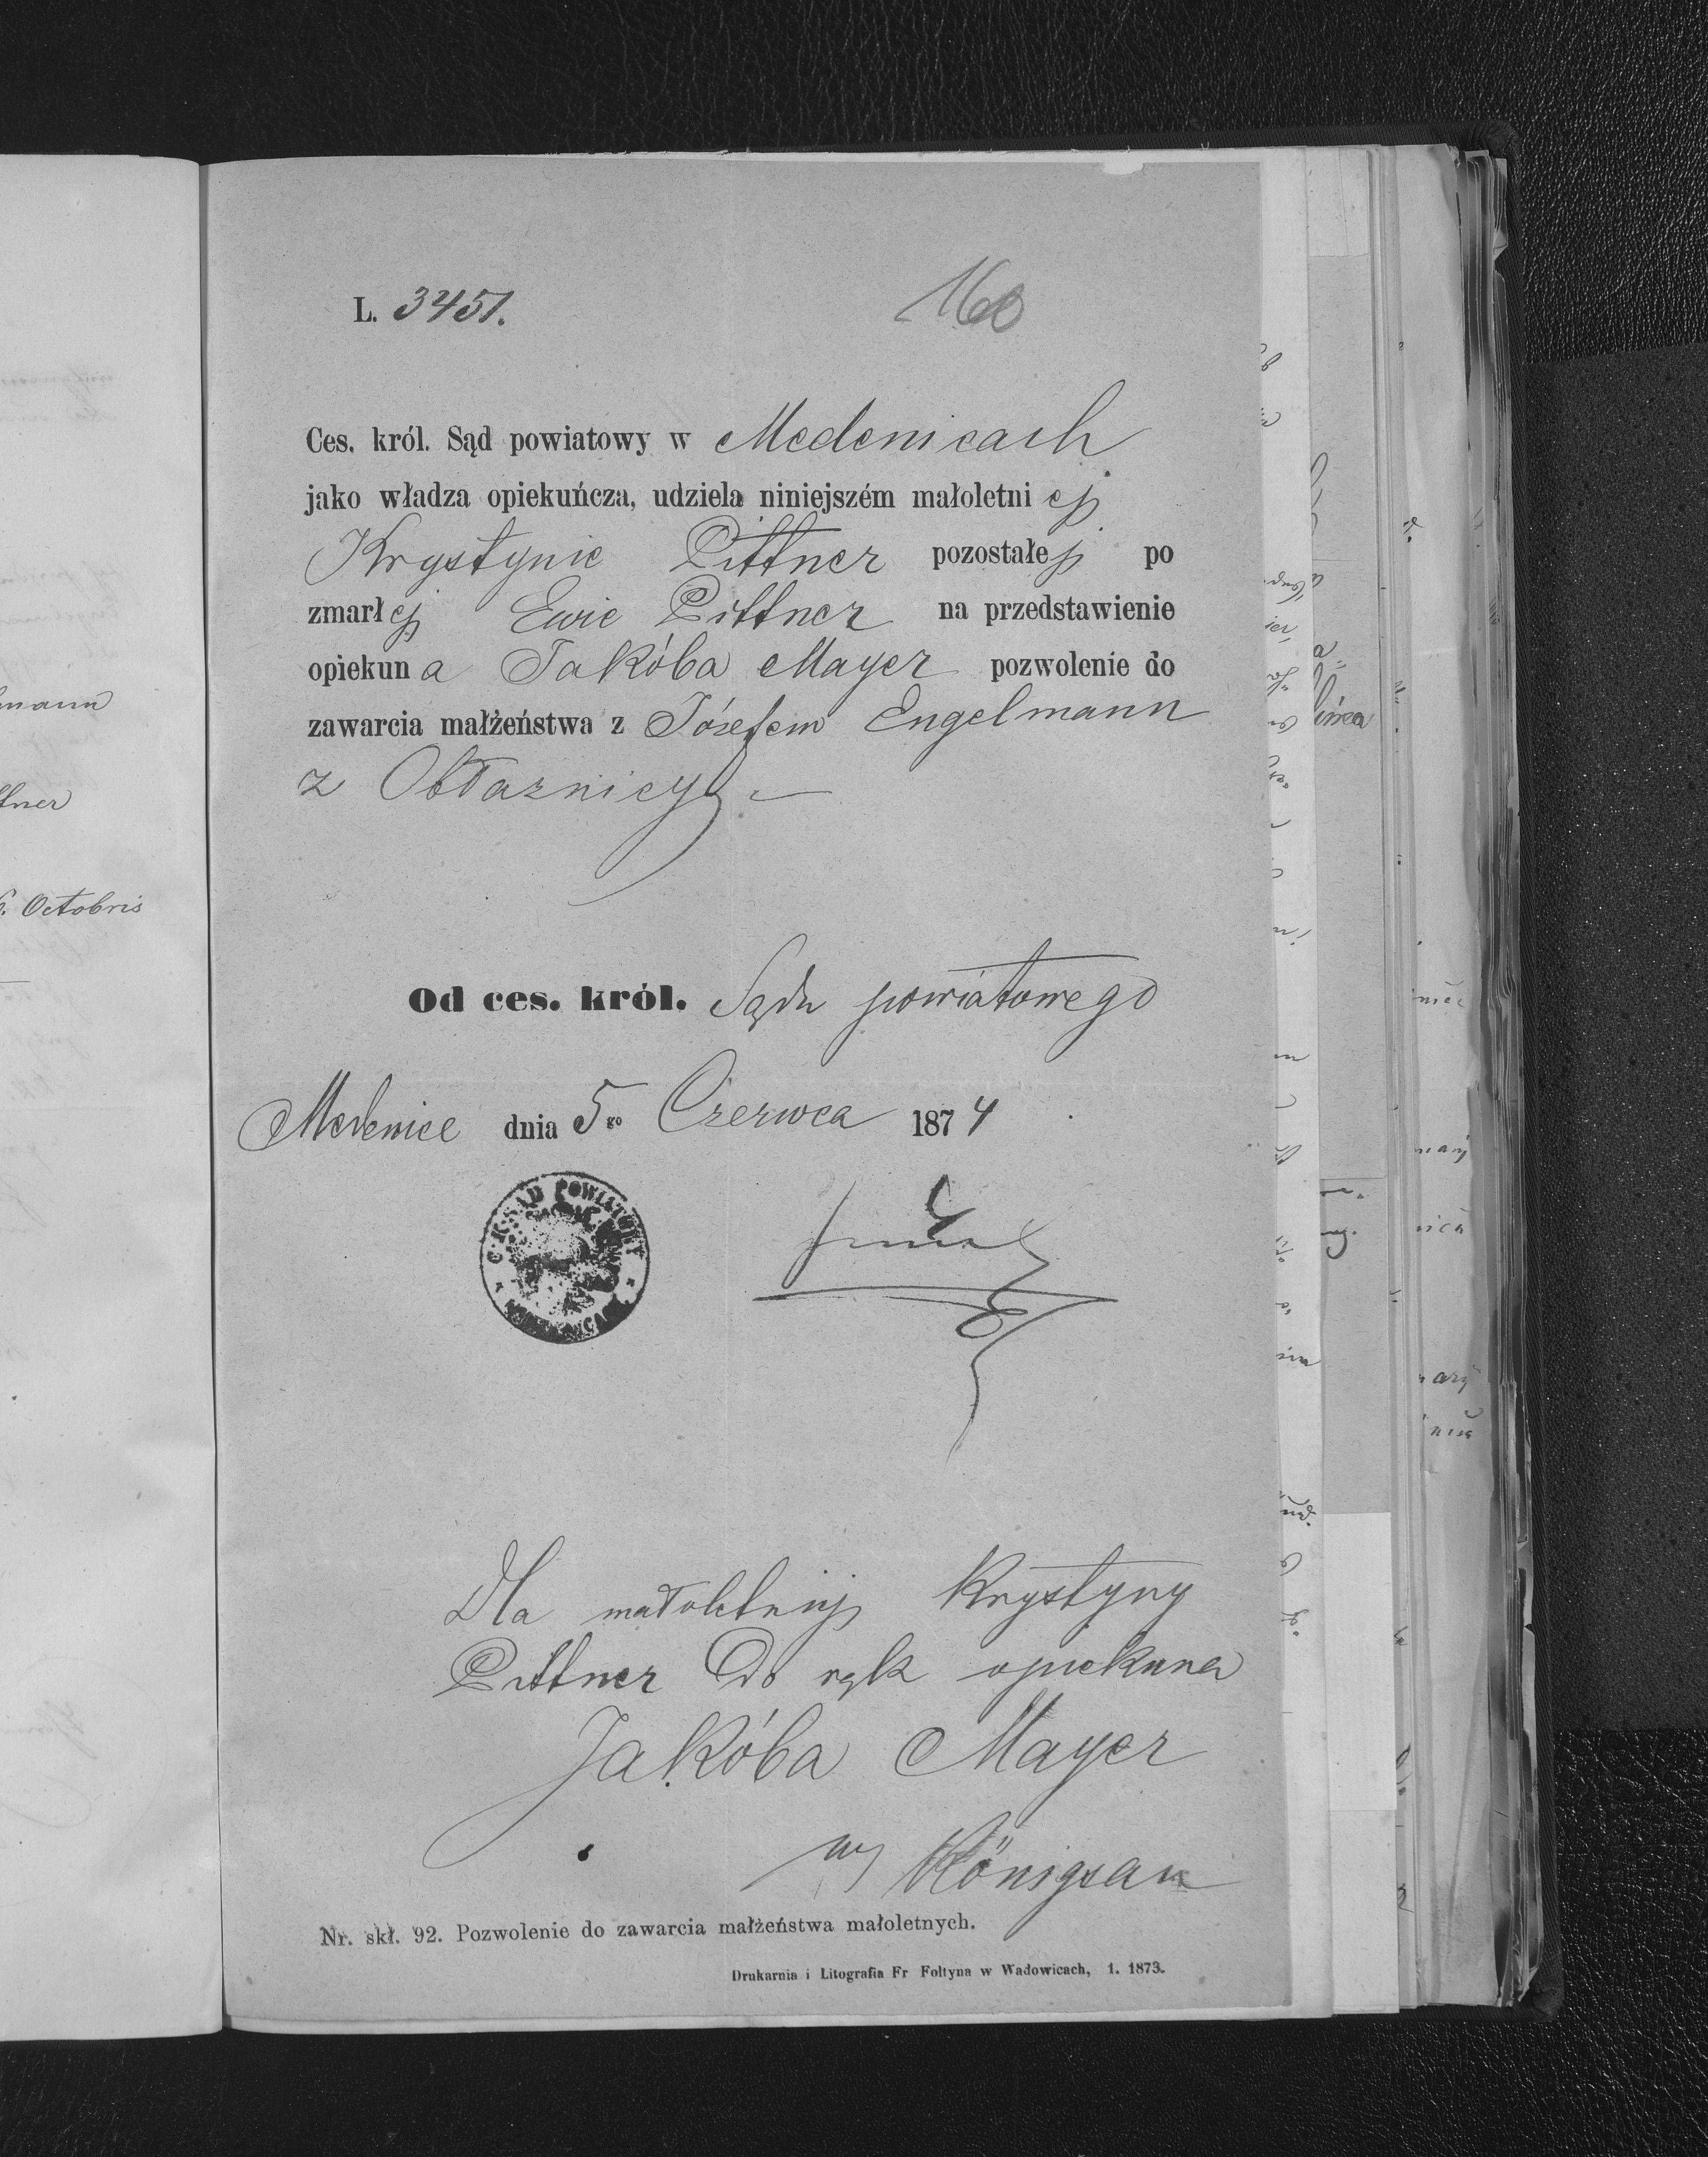 L. 3451.
160
Ces. król. Sąd powiatowy w Medenicach
jako władza opiekuńcza, udziela niniejszém małoletniej
Krystynie Pittner pozostałej po
zmarłej Ewie Pittner na przedstawienie
opiekuna Jakóba Mayer pozwolenie do
zawarcia małżeństwa z Józefem Engelmann
z Obłaznicy
Od ces. król. Sądu powiatowego
Medenice dnia 5go Czerwca 1874
C. K. SĄD POWIATOWY
Dla małoletniej Krystyny
Pittner do rąk opiekuna
Jakóba Mayer
w Königsau
Nr. skł. 92. Pozwolenie do zawarcia małżeństwa małoletnych.
Drukarnia i Litografia Fr Foltyna w Wadowicach, 1. 1873.
mann
tner
6. Octobris